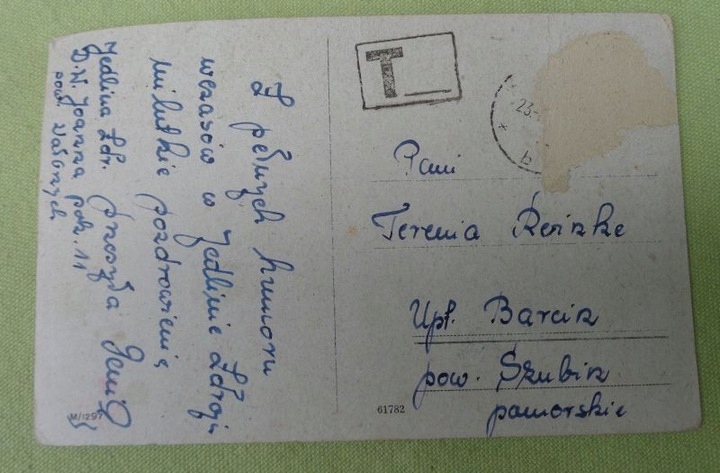 Z pełnych humoru
wczasów w Jedlinie Zdroju
milutkie pozdrowienia
Jedlina Zdr.
D.W. Joanna pok. 11
pow. Wałbrzych
T
23-
b
Pani
Terenia Reinke
Upt. Barcin
pow. Szubin
pomorskie
M/1297
61782